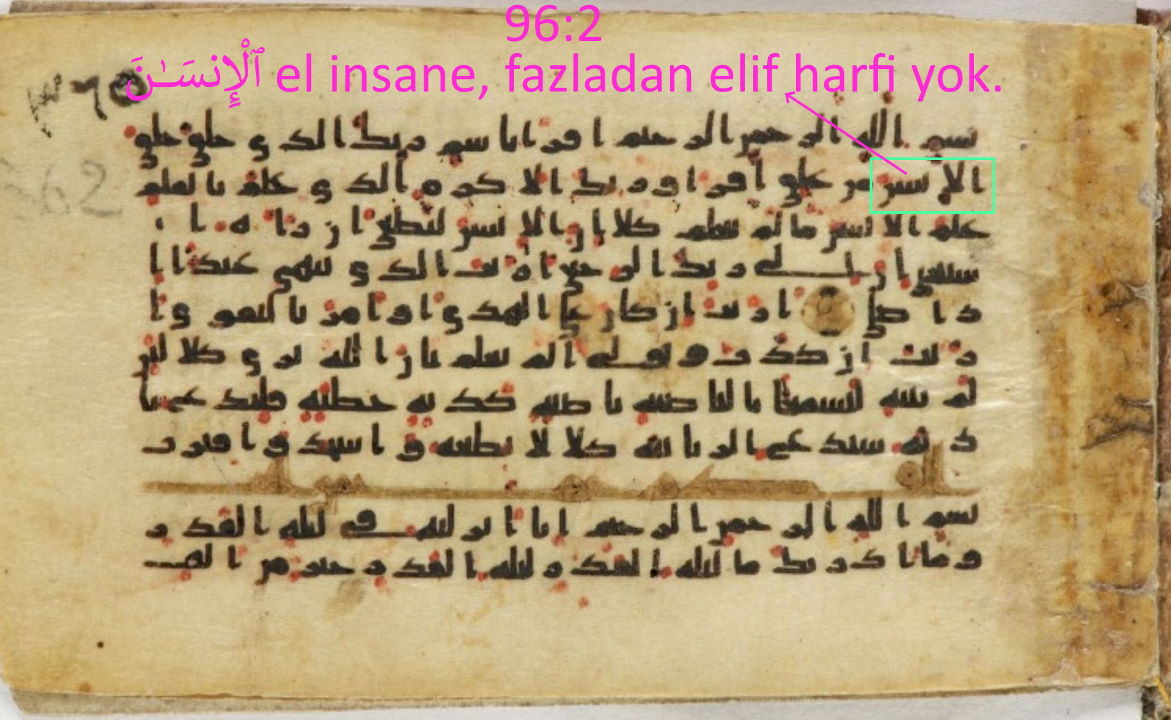 96:2
ٱلْإِنسَـٰنَ el insane, fazladan elif harfi yok.
٣٦٥
بسم الله الرحمن الرحيم اقرا باسم ربك الذي خلق خلق
الانسن من علق اقرا وربك الاكرم الذي علم بالقلم
علم الانسن ما لم يعلم كلا ان الانسن ليطغى ان راه ا
ستغنى ان الى ربك الرجعى ارايت الذي ينهى عبدا ا
ذا صلى ارايت ان كان على الهدى او امر بالتقوى ا
رايت ان كذب وتولى الم يعلم بان الله يرى كلا لئن
لم ينته لنسفعا بالناصية ناصية كذبة خطية فليدع نا
ديه سندع الزبانية كلا لا تطعه واسجد واقترب
بسم الله الرحمن الرحيم انا انزلنه في ليلة القدر
وما ادريك ما ليلة القدر ليلة القدر خير من الف